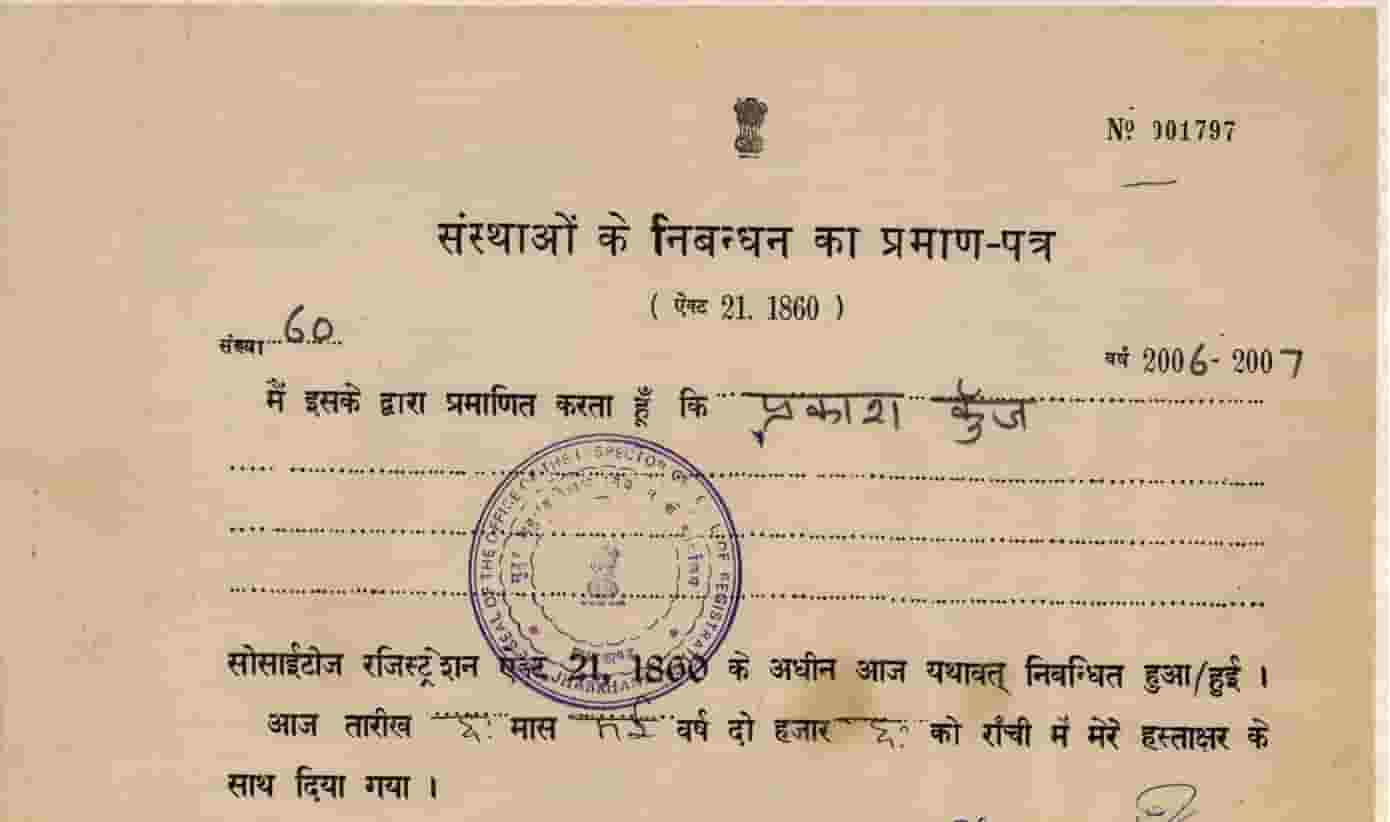 No 001797
संस्थाओं के निबन्धन का प्रमाण-पत्र
( ऐक्ट 21. 1860 )
संख्या 60
वर्ष 2006-2007
मैं इसके द्वारा प्रमाणित करता हूँ कि प्रकाश कुँज
SEAL OF THE OFFICE OF THE INSPECTOR GENERAL OF REGISTRATION JHARKHAND
सोसाईटीज रजिस्ट्रेशन एक्ट 21, 1860 के अधीन आज यथावत् निबन्धित हुआ/हुई ।
आज तारीख छः मास मई वर्ष दो हजार छः को राँची में मेरे हस्ताक्षर के
साथ दिया गया ।